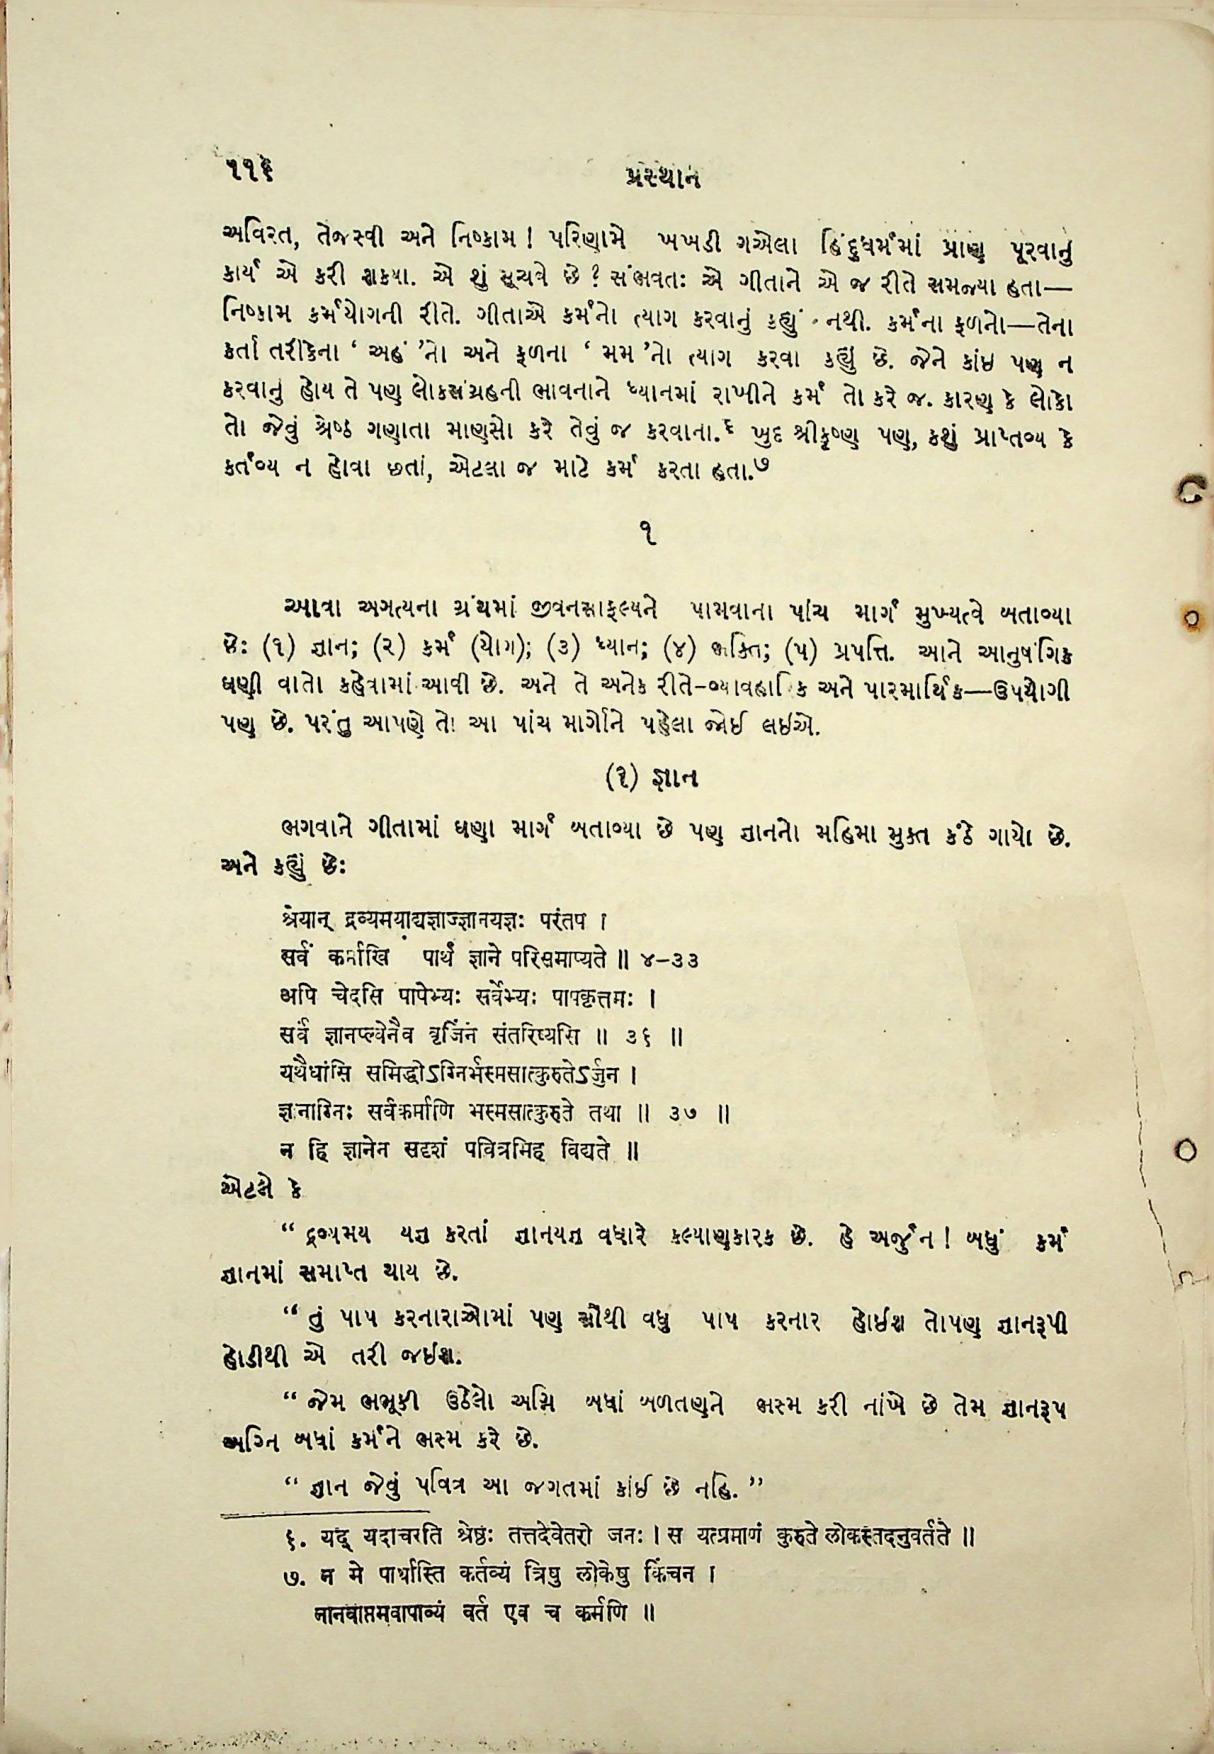 ૧૧૬
પ્રસ્થાન
અવિરત, તેજસ્વી અને નિષ્કામ ! પરિણામે ખખડી ગએલા હિંદુધર્મમાં પ્રાણ પૂરવાનું
કાર્ય એ કરી શકયા. એ શું સૂચવે છે ? સંભવતઃ એ ગીતાને એ જ રીતે સમજ્યા હતા—
નિષ્કામ કર્મયોગની રીતે. ગીતાએ કર્મનો ત્યાગ કરવાનું કહ્યું નથી. કર્મના ફળનો—તેના
કર્તા તરીકેના ‘ અહં ’નો અને ફળના ‘ મમ ’નો ત્યાગ કરવા કહ્યું છે. જેને કાંઇ પણ ન
કરવાનું હોય તે પણ લોકસંગ્રહની ભાવનાને ધ્યાનમાં રાખીને કર્મ તો કરે જ. કારણ કે લોકો
તો જેવું શ્રેષ્ઠ ગણાતા માણસો કરે તેવું જ કરવાના.૬ ખુદ શ્રીકૃષ્ણ પણ, કશું પ્રાપ્તવ્ય કે
કર્તવ્ય ન હોવા છતાં, એટલા જ માટે કર્મ કરતા હતા.૭
૧
આવા અગત્યના ગ્રંથમાં જીવનસાફલ્યને પામવાના પાંચ માર્ગ મુખ્યત્વે બતાવ્યા
છેઃ (૧) જ્ઞાન; (૨) કર્મ (યોગ); (૩) ધ્યાન; (૪) ભક્તિ; (૫) પ્રપત્તિ. આને આનુષંગિક
ઘણી વાતો કહેવામાં આવી છે. અને તે અનેક રીતે-વ્યાવહારિક અને પારમાર્થિક—ઉપયોગી
પણ છે. પરંતુ આપણે તો આ પાંચ માર્ગોને પહેલા જોઈ લઇએ.
(૧) જ્ઞાન
ભગવાને ગીતામાં ઘણા માર્ગ બતાવ્યા છે પણ જ્ઞાનનો મહિમા મુક્ત કંઠે ગાયો છે.
અને કહ્યું છેઃ
श्रेयान् द्रव्यमयाद्यज्ञाज्ज्ञानयज्ञः परंतप ।
सर्वं कर्माखि पार्थ ज्ञाने परिसमाप्यते ॥ ૪–૩૩
अपि चेदसि पापेभ्यः सर्वेभ्यः पापकृत्तमः ।
सर्वं ज्ञानप्लवेनैव वृजिनं संतरिष्यसि ॥ ૩૬ ॥
यथैधांसि समिद्धोऽग्निर्भस्मसात्कुरुतेऽर्जुन ।
ज्ञानाग्निः सर्वकर्माणि भस्मसात्कुरुते तथा ॥ ૩૭ ॥
न हि ज्ञानेन सदृशं पवित्रमिह विद्यते ॥
એટલે કે
“ દ્રવ્યમય યજ્ઞ કરતાં જ્ઞાનયજ્ઞ વધારે કલ્યાણકારક છે. હે અર્જુન ! બધું કર્મ
જ્ઞાનમાં સમાપ્ત થાય છે.
“ તું પાપ કરનારાઓમાં પણ સૌથી વધુ પાપ કરનાર હોઈશ તોપણ જ્ઞાનરૂપી
હોડીથી એ તરી જઈશ.
“ જેમ ભભૂકી ઉઠેલો અગ્નિ બધાં બળતણને ભસ્મ કરી નાંખે છે તેમ જ્ઞાનરૂપ
અગ્નિ બધાં કર્મને ભસ્મ કરે છે.
“ જ્ઞાન જેવું પવિત્ર આ જગતમાં કાંઈ છે નહિ. ”
૬. यद् यदाचरति श्रेष्ठः तत्तदेवेतरो जनः । स यत्प्रमाणं कुरुते लोकस्तदनुवर्तते ॥
૭. न मे पार्थास्ति कर्तव्यं त्रिषु लोकेषु किंचन ।
नानवाप्तमवापाव्यं वर्त एव च कर्मणि ॥